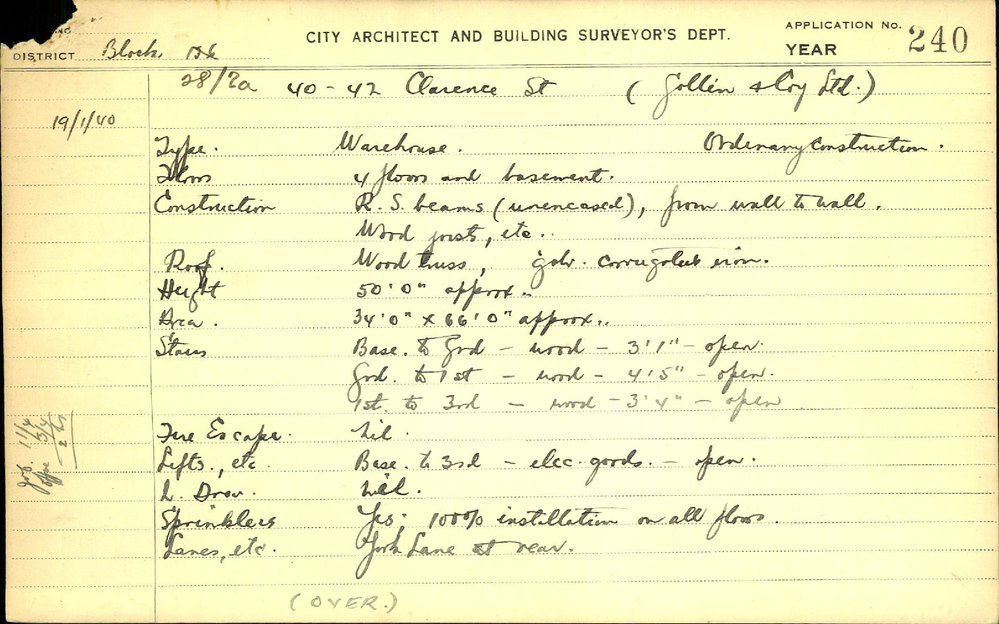 CITY ARCHITECT AND BUILDING SURVEYOR'S DEPT.
APPLICATION No. 240
YEAR
DISTRICT Block
28/2a 40-42 Clarence St (Gollin & Coy Ltd.)
19/1/40
Type. Warehouse. Ordinary construction.
Floors 4 floors and basement.
Construction R.S. beams (unencased), from wall to wall.
Wood joists, etc.
Roof. Wood truss, galv. corrugated iron.
Height 50'0" approx.
Area. 34'0" x 66'0" approx.
Stairs Base. to Grd - wood - 3'1" - open.
Grd. to 1st - wood - 4'5" - open.
1st. to 3rd - wood - 3'4" - open
Fire Escape. Nil.
Lifts, etc Base. to 3rd - elec. goods. - open.
L. Nil.
Sprinklers Yes; 100% installation on all floors.
Lanes, etc. York Lane at rear.
(OVER.)